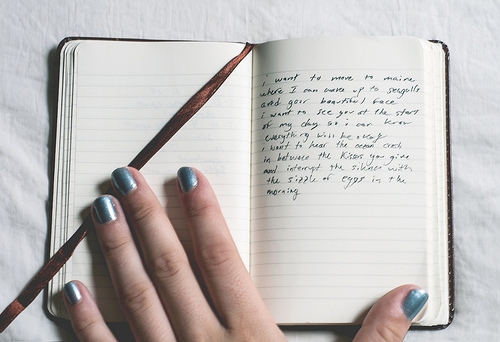 i want to move to maine
where I can wake up to seagulls
and your beautiful face
i want to see you at the start
of my day so i can know
everything will be okay
i want to hear the ocean crash
in between the kisses you give
and interrupt the silence with
the sizzle of eggs in the
morning